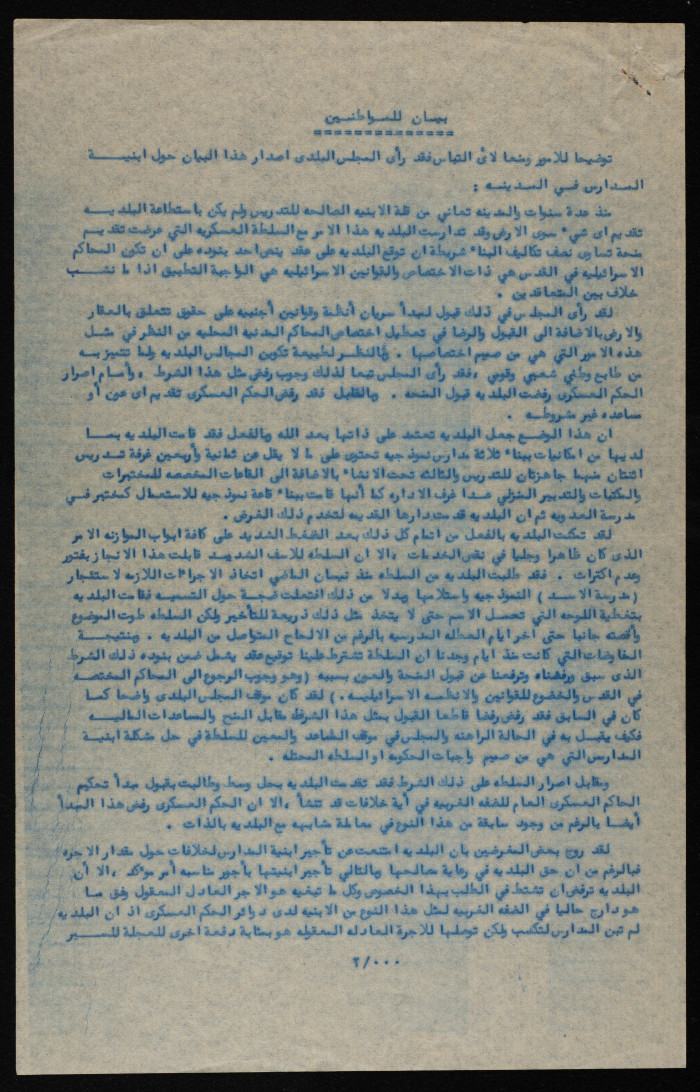 بيان للمواطنين
توضيحا للامور ومنعا لائ التباس فقد رأى المجلس البلدى اصدار هذا البيان حول ابنية
المدارس في المدينه :
منذ عدة سنوات والمدينه تعاني من قلة الابنيه الصالحه للتدريس ولم يكن باستطاعة البلديه
تقديم اى شي* سوى الارض وقد تدارست البلديه هذا الامر مع السلطة العسكريه التي عرضت تقديم
منحة تساوى نصف تكاليف البنا* شريطة ان توقع البلديه على عقد ينص احد بنوده على ان تكون المحاكم
الاسرائيليه في القدس هي ذات الاختصاص والقوانين الاسرائيليه هي الواجبة التطبيق اذا ما نشب
خلاف بين المتعاقدين .
لقد رأى المجلس في ذلك قبول لمبدأ سريان أنظمة وقوانين أجنبيه على حقوق تتعلق بالعقار
والارض بالاضافة الى القبول والرضا في تعطيل اختصاص المحاكم المدنيه المحليه من النظر في مثل
هذه الامور التي هي من صميم اختصاصها . وبالنظر لطبيعة تكوين المجالس البلديه ولما تتميز به
من طابع وطني شعبي وقومي ، فقد رأى المجلس تبعا لذلك وجوب رفض مثل هذا الشرط ، وأمام اصرار
الحكم العسكرى رفضت البلديه قبول المنحه . وبالمقابل فقد رفض الحكم العسكرى تقديم اى عون أو
مساعده غير مشروطه .
ان هذا الوضع جعل البلديه تعتمد على ذاتها بعد الله وبالفعل فقد قامت البلديه بما
لديها من امكانيات ببنا* ثلاثة مدارس نموذجيه تحتوى على ما لا يقل عن ثمانية وأربعين غرفة تدريس
اثنتان منهما جاهزتان للتدريس والثالثه تحت الانشا* بالاضافة الى القاعات المخصصه للمختبرات
والمكتبات والتدبير المنزلي عدا غرف الاداره كما أنها قامت ببنا* قاعة نموذجيه للاستعمال كمختبر في
مدرسة العدويه ثم ان البلديه قدمت دارها القديمه لتخدم ذلك الغرض .
لقد تمكنت البلديه بالفعل من اتمام كل ذلك بعد الضغط الشديد على كافة ابواب الموازنه الامر
الذى كان ظاهرا وجليا في نقص الخدمات ، الا ان السلطه للاسف الشديد قابلت هذا الانجاز بفتور
وعدم اكتراث . فقد طلبت البلديه من السلطه منذ نيسان الماضي اتخاذ الاجرا*ات اللازمه لاستئجار
( مدرسة الاسد ) النموذجيه واستلامها وبدلا من ذلك افتعلت ضجة حول التسميه فقامت البلديه
بتغطية اللوحه التي تحمل الاسم حتى لا يتخذ مثل ذلك ذريعة للتأخير ولكن السلطه طوت الموضوع
وأقصته جانبا حتى اخر ايام العطله المدرسيه بالرغم من الالحاح المتواصل من البلديه . ونتيجة
المفاوضات التي كانت منذ ايام وجدنا ان السلطة تشترط علينا توقيع عقد يشمل ضمن بنوده ذلك الشرط
الذى سبق ورفضناه وترفعنا عن قبول المنحة والعون بسببه ( وهو وجوب الرجوع الى المحاكم المختصه
في القدس والخضوع للقوانين والانظمه الاسرائيليه . ) لقد كان موقف المجلس البلدى واضحا كما
كان في السابق فقد رفض رفضا قاطعا القبول بمثل هذا الشرط مقابل المنح والمساعدات الماليه
فكيف يقبل به في الحالة الراهنه والمجلس في موقف المساعد والمعين للسلطة في حل مشكلة ابنية
المدارس التي هي من صميم واجبات الحكومه او السلطه المحتله .
ومقابل اصرار السلطه على ذلك الشرط فقد تقدمت البلديه بحل وسط وطالبت بقبول مبدأ تحكيم
الحاكم العسكرى العام للضفه الغربيه في أية خلافات قد تنشأ ، الا ان الحكم العسكرى رفض هذا المبدأ
أيضا بالرغم من وجود سابقة من هذا النوع في معاملة مشابهه مع البلديه بالذات .
لقد روج بعض المغرضين بان البلديه امتنعت عن تأجير ابنية المدارس لخلافات حول مقدار الاجره
فبالرغم من ان حق البلديه في رعاية مصالحها وبالتالي تأجير ابنيتها بأجور مناسبه أمر مؤكد ، الا أن
البلديه ترفض ان تشتط في الطلب بهذا الخصوص وكل ما تبغيه هو الاجر العادل المعقول وفق ما
هو دارج حاليا في الضفه الغربيه لمثل هذا النوع من الابنيه لدى دوائر الحكم العسكرى اذ ان البلديه
لم تبن المدارس لتكسب ولكن توصلها للاجرة العادله المعقوله هو بمثابة دفعة اخرى للعجلة للسير
٢/٠٠٠